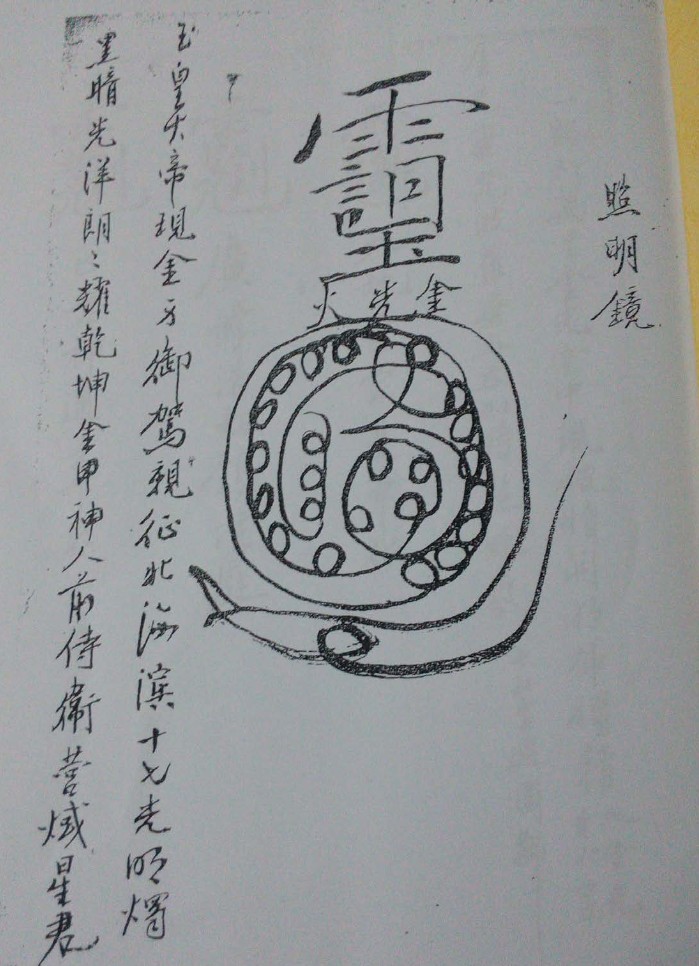 照明鏡
金光火
玉皇大帝現金方御駕親征北海濱十七光明燭
黑暗光洋朗〻耀乾坤金甲神人前侍衛營煘星君